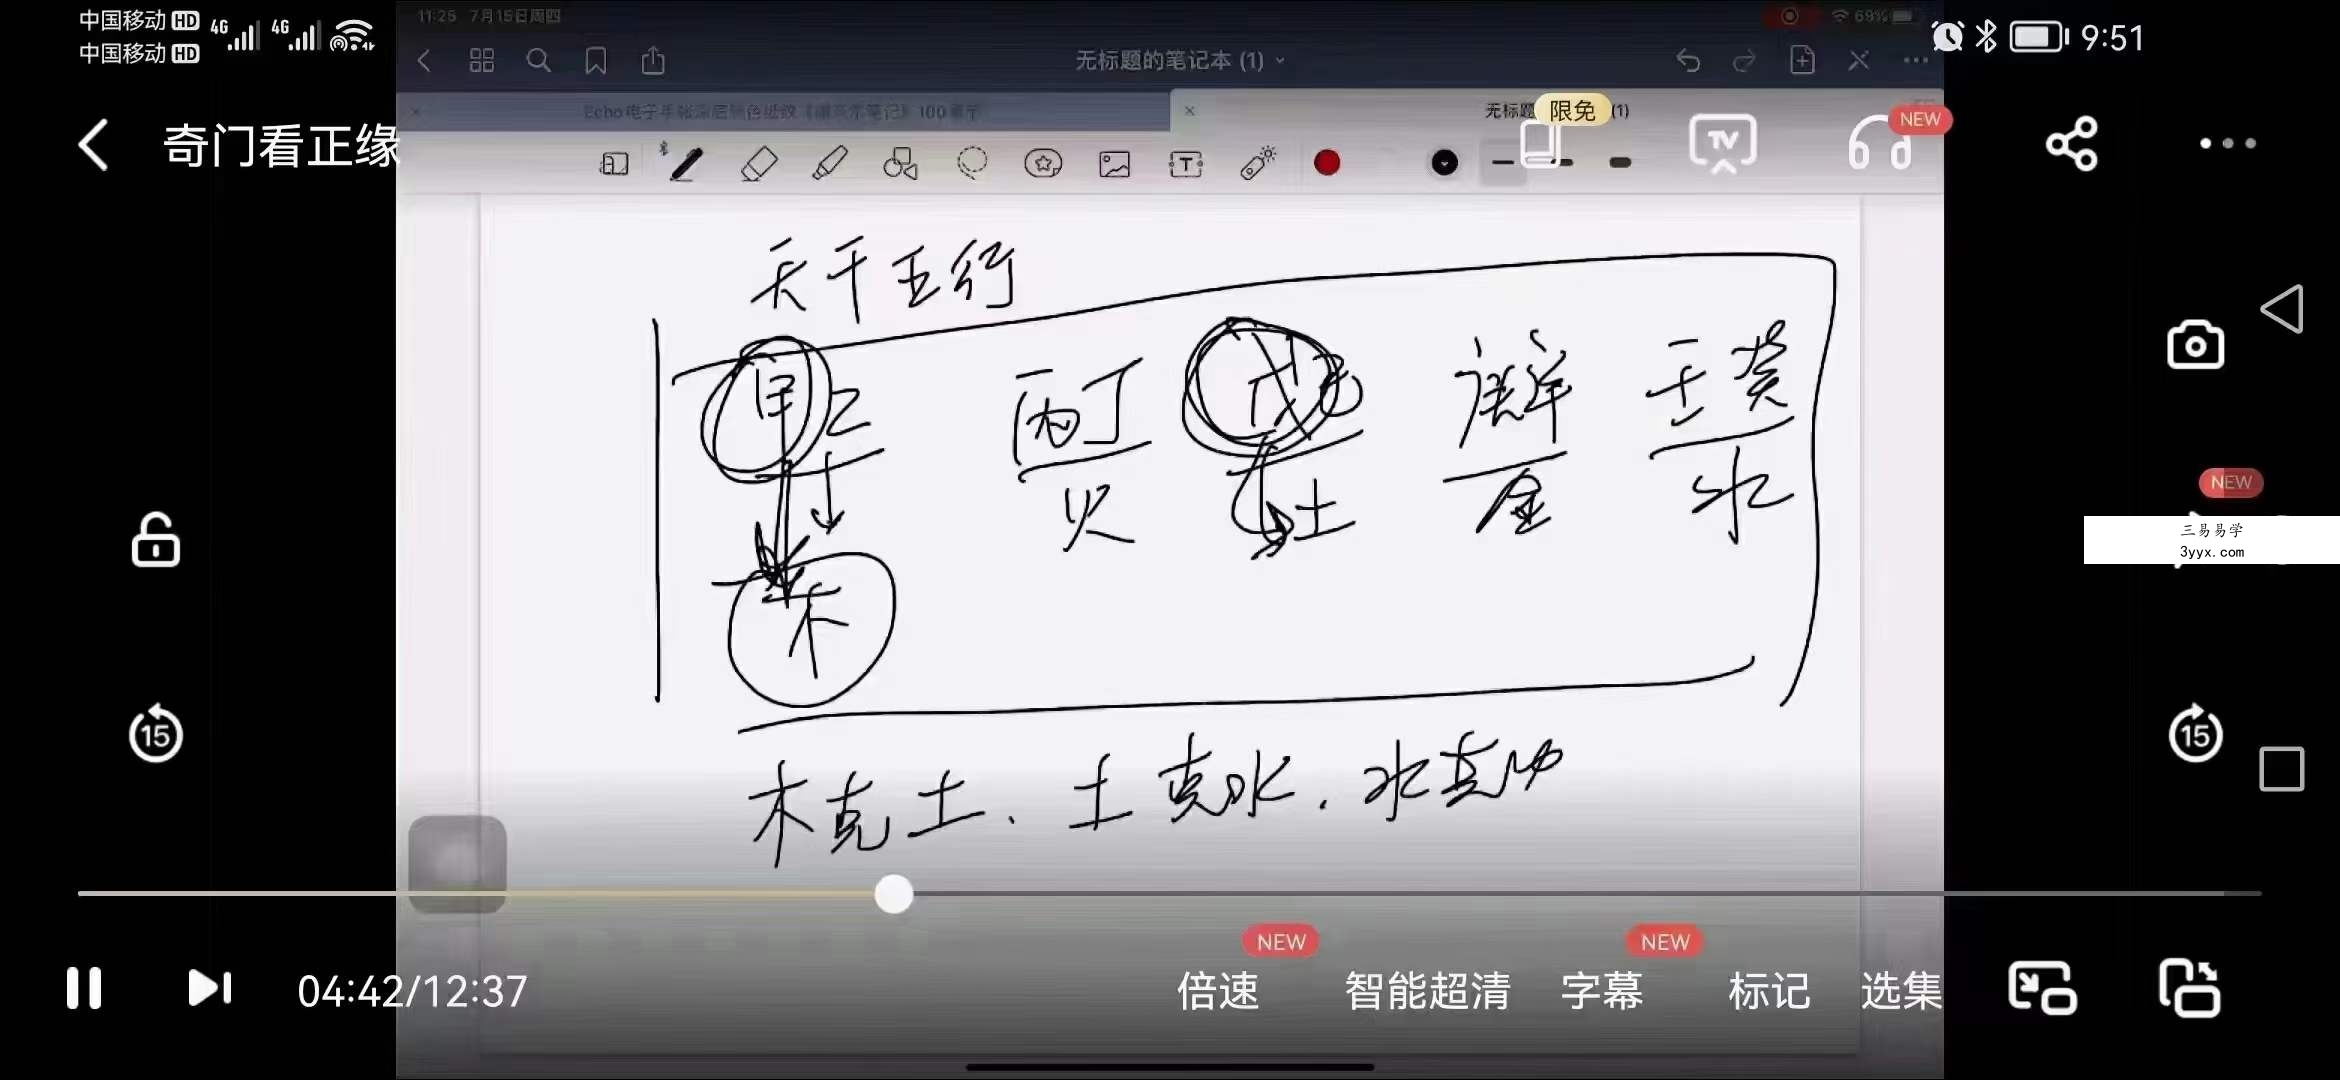 中国移动 HD 4G 4G
中国移动 HD
11:25 7月15日周四
69%
9:51
无标题的笔记本 (1)
奇门看正缘
100
无标题 (1)
限免
TV
NEW
T
天干五行
甲乙 丙丁 戊己 庚辛 壬癸
木 火 土 金 水
NEW
三易易学
3yyx.com
15
15
木克土、土克水、水克
NEW
NEW
04:42/12:37
倍速
智能超清
字幕
标记
选集